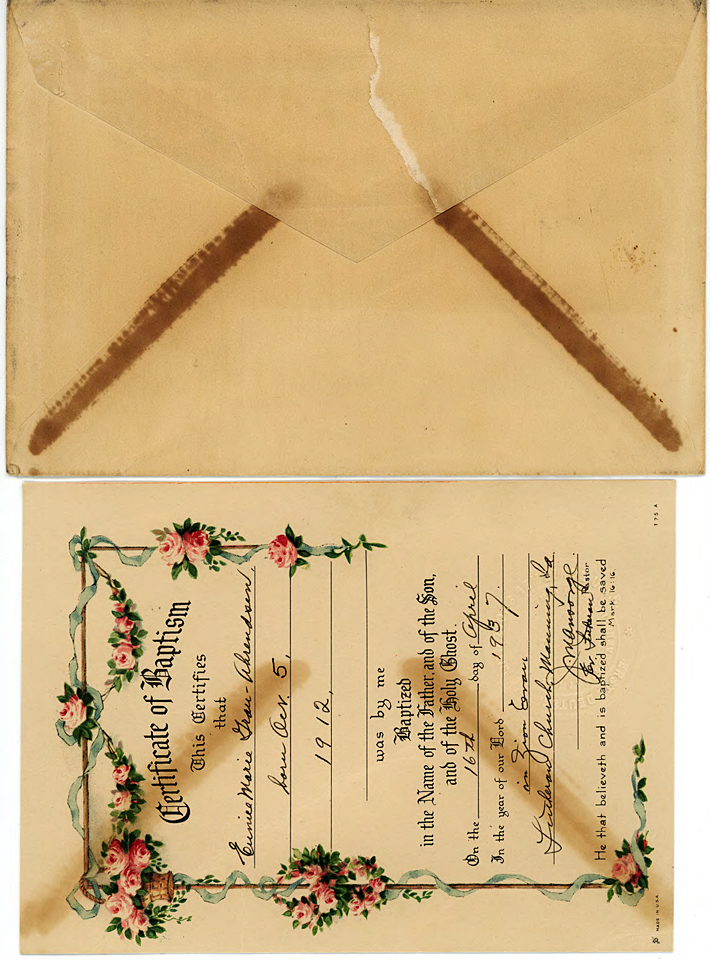 Certificate of Baptism
This Certifies
that
Eunice Marie Grau-Ahrendsen,
born Oct. 5,
1912,
was by me
Baptized
in the Name of the Father, and of the Son,
and of the Holy Ghost.
On the 16th day of April
In the year of our Lord 1937.
in Zion Evan
Lutheran Church Manning, Ia
Pastor
He that believeth and is baptized shall be saved
Mark 16:16
175 A
MADE IN U.S.A.